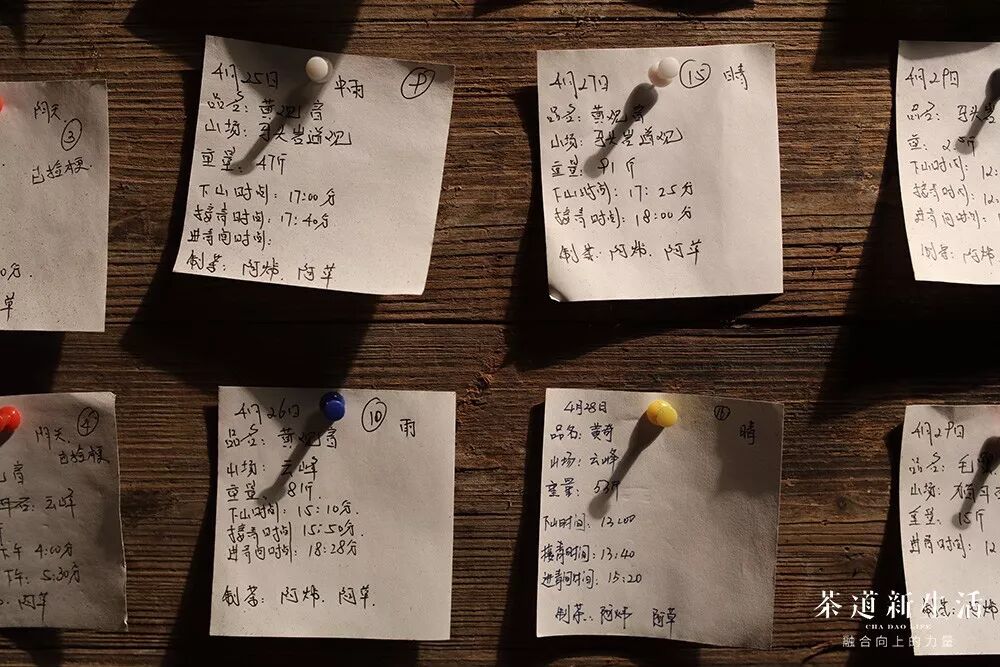 阴天
③
已捡梗
4月25日
半雨
品名：黄观音
山场：马头岩道观
重量：47斤
下山时间：17:00分
接青时间：17:40分
进青间时间：
制茶：阿炜、阿草
4月27日
⑮
晴
品名：黄观音
山场：马头岩道观
重量：91斤
下山时间：17:25分
接青时间：18:00分
制茶：阿炜、阿草
4月29日
马头岩
下山时间：12:
接青时间：12:
进青间时间：1
制茶：阿炜
阴天
④
已捡梗
云峰
下午 4:00分
下午：5:30分
阿草
4月26日
⑩
雨
品名：黄观音
山场：云峰
重量：81斤
下山时间：15:10分
接青时间 15:50分
进青间时间：18:28分
制茶：阿炜、阿草
4月28日
晴
品名：黄奇
山场：云峰
重量：53斤
下山时间：13:00
接青时间：13:40
进青间时间：15:20
制茶：阿炜 阿草
4月29日
品名：毛
山场：
重量：15斤
进青时间：12
制茶：阿炜
茶道新生活
CHA DAO LIFE
融合向上的力量